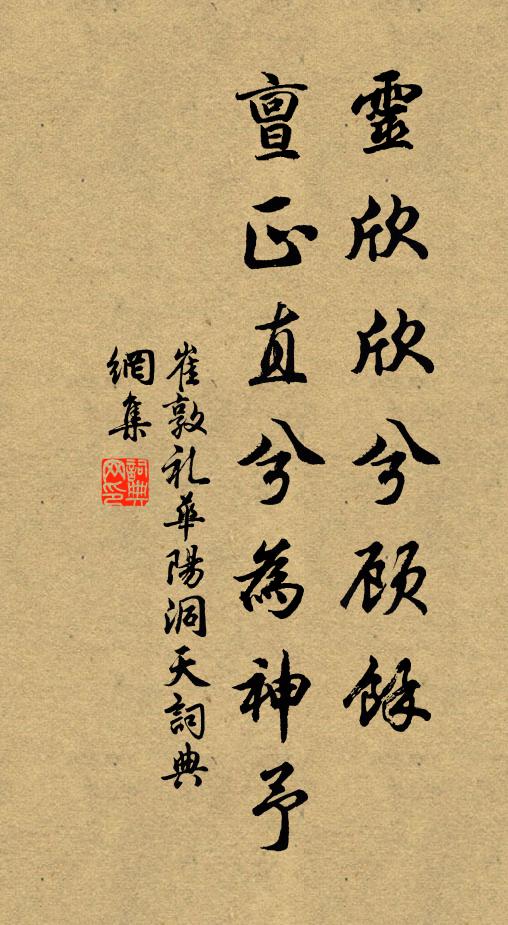 靈欣欣兮顾餘
亶正直兮為神予
崔敦礼華陽洞天詞典
網集
詞典
网印